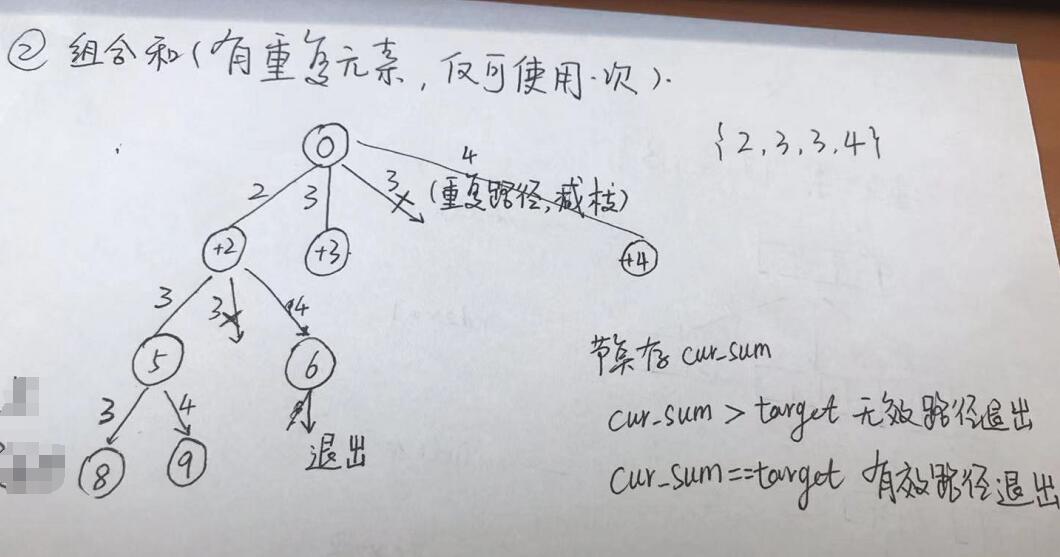 ② 组合和(有重复元素,仅可使用一次).
{2,3,3,4}
0
2 3 3 4
(重复路径,减枝)
+2 +3 +4
3 3 4
5 6
3 4
退出
8 9
节点存 cur_sum
cur_sum > target 无效路径退出
cur_sum==target 有效路径退出